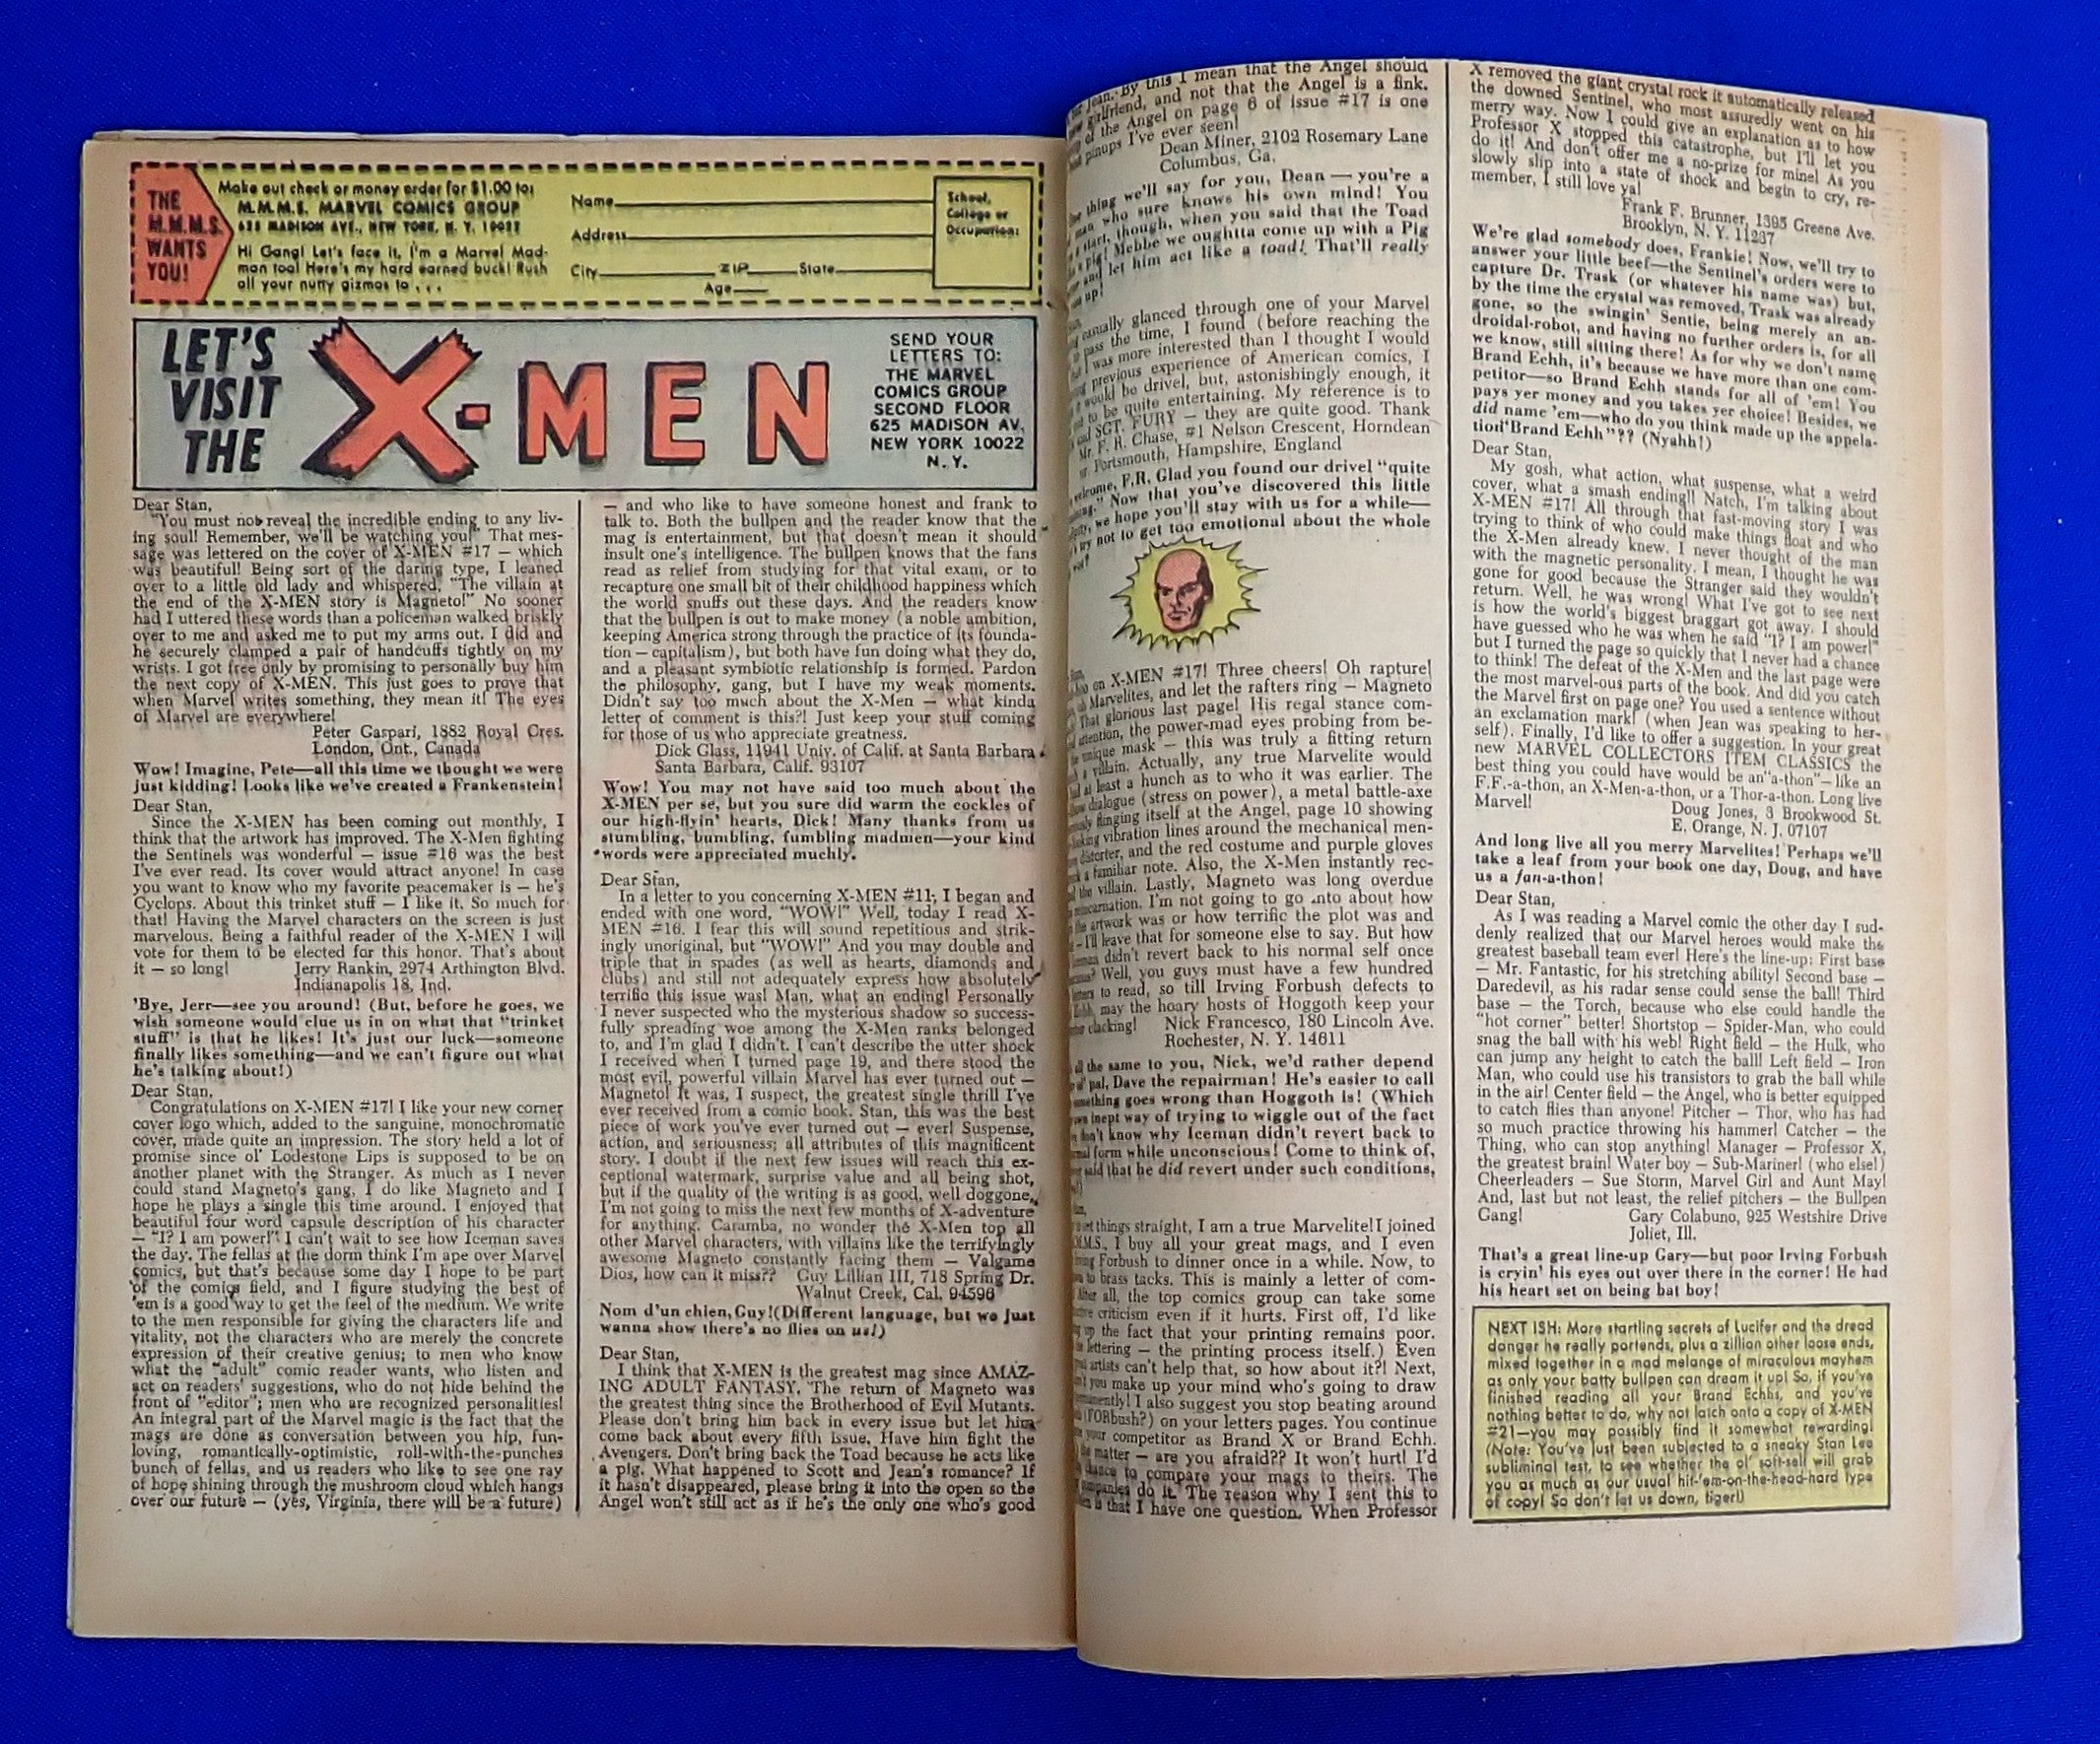 THE
M.M.M.S.
WANTS
YOU!
Make out check or money order for $1.00 to:
M.M.M.S. MARVEL COMICS GROUP
625 MADISON AVE., NEW YORK, N. Y. 10022
Hi Gang! Let's face it, I'm a Marvel Mad-
man too! Here's my hard earned buck! Rush
all your nutty gizmos to . . .
Name
Address
City ZIP State
Age
School,
College or
Occupation:
LET'S
VISIT
THE
X-MEN
SEND YOUR
LETTERS TO:
THE MARVEL
COMICS GROUP
SECOND FLOOR
625 MADISON AV.
NEW YORK 10022
N. Y.
Dear Stan,
"You must not reveal the incredible ending to any liv-
ing soul! Remember, we'll be watching you!" That mes-
sage was lettered on the cover of X-MEN #17 — which
was beautiful! Being sort of the daring type, I leaned
over to a little old lady and whispered, "The villain at
the end of the X-MEN story is Magneto!" No sooner
had I uttered these words than a policeman walked briskly
over to me and asked me to put my arms out. I did and
he securely clamped a pair of handcuffs tightly on my
wrists. I got free only by promising to personally buy him
the next copy of X-MEN. This just goes to prove that
when Marvel writes something, they mean it! The eyes
of Marvel are everywhere!
Peter Gaspari, 1882 Royal Cres.
London, Ont., Canada
Wow! Imagine, Pete—all this time we thought we were
just kidding! Looks like we've created a Frankenstein!
Dear Stan,
Since the X-MEN has been coming out monthly, I
think that the artwork has improved. The X-Men fighting
the Sentinels was wonderful — issue #16 was the best
I've ever read. Its cover would attract anyone! In case
you want to know who my favorite peacemaker is — he's
Cyclops. About this trinket stuff — I like it. So much for
that! Having the Marvel characters on the screen is just
marvelous. Being a faithful reader of the X-MEN I will
vote for them to be elected for this honor. That's about
it — so long! Jerry Rankin, 2974 Arthington Blvd.
Indianapolis 18, Ind.
'Bye, Jerr—see you around! (But, before he goes, we
wish someone would clue us in on what that "trinket
stuff" is that he likes! It's just our luck—someone
finally likes something—and we can't figure out what
he's talking about!)
Dear Stan,
Congratulations on X-MEN #17! I like your new corner
cover logo which, added to the sanguine, monochromatic
cover, made quite an impression. The story held a lot of
promise since ol' Lodestone Lips is supposed to be on
another planet with the Stranger. As much as I never
could stand Magneto's gang, I do like Magneto and I
hope he plays a single this time around. I enjoyed that
beautiful four word capsule description of his character
— "I? I am power!" I can't wait to see how Iceman saves
the day. The fellas at the dorm think I'm ape over Marvel
comics, but that's because some day I hope to be part
of the comics field, and I figure studying the best of
'em is a good way to get the feel of the medium. We write
to the men responsible for giving the characters life and
vitality, not the characters who are merely the concrete
expression of their creative genius; to men who know
what the "adult" comic reader wants, who listen and
act on readers' suggestions, who do not hide behind the
front of "editor"; men who are recognized personalities!
An integral part of the Marvel magic is the fact that the
mags are done as conversation between you hip, fun-
loving, romantically-optimistic, roll-with-the-punches
bunch of fellas, and us readers who like to see one ray
of hope shining through the mushroom cloud which hangs
over our future — (yes, Virginia, there will be a future)
— and who like to have someone honest and frank to
talk to. Both the bullpen and the reader know that the
mag is entertainment, but that doesn't mean it should
insult one's intelligence. The bullpen knows that the fans
read as relief from studying for that vital exam, or to
recapture one small bit of their childhood happiness which
the world snuffs out these days. And the readers know
that the bullpen is out to make money (a noble ambition,
keeping America strong through the practice of its founda-
tion — capitalism), but both have fun doing what they do,
and a pleasant symbiotic relationship is formed. Pardon
the philosophy, gang, but I have my weak moments.
Didn't say too much about the X-Men — what kinda
letter of comment is this?! Just keep your stuff coming
for those of us who appreciate greatness.
Dick Glass, 11941 Univ. of Calif. at Santa Barbara
Santa Barbara, Calif. 93107
Wow! You may not have said too much about the
X-MEN per se, but you sure did warm the cockles of
our high-flyin' hearts, Dick! Many thanks from us
stumbling, bumbling, fumbling madmen—your kind
words were appreciated muchly.
Dear Stan,
In a letter to you concerning X-MEN #11, I began and
ended with one word, "WOW!" Well, today I read X-
MEN #16. I fear this will sound repetitious and strik-
ingly unoriginal, but "WOW!" And you may double and
triple that in spades (as well as hearts, diamonds and
clubs) and still not adequately express how absolutely
terrific this issue was! Man, what an ending! Personally
I never suspected who the mysterious shadow so success-
fully spreading woe among the X-Men ranks belonged
to, and I'm glad I didn't. I can't describe the utter shock
I received when I turned page 19, and there stood the
most evil, powerful villain Marvel has ever turned out —
Magneto! It was, I suspect, the greatest single thrill I've
ever received from a comic book. Stan, this was the best
piece of work you've ever turned out — ever! Suspense,
action, and seriousness; all attributes of this magnificent
story. I doubt if the next few issues will reach this ex-
ceptional watermark, surprise value and all being shot,
but if the quality of the writing is as good, well doggone,
I'm not going to miss the next few months of X-adventure
for anything. Caramba, no wonder the X-Men top all
other Marvel characters, with villains like the terrifyingly
awesome Magneto constantly facing them — Valgame
Dios, how can it miss?? Guy Lillian III, 718 Spring Dr.
Walnut Creek, Cal. 94596
Nom d'un chien, Guy! (Different language, but we just
wanna show there's no flies on us!)
Dear Stan,
I think that X-MEN is the greatest mag since AMAZ-
ING ADULT FANTASY. The return of Magneto was
the greatest thing since the Brotherhood of Evil Mutants.
Please don't bring him back in every issue but let him
come back about every fifth issue. Have him fight the
Avengers. Don't bring back the Toad because he acts like
a pig. What happened to Scott and Jean's romance? If
it hasn't disappeared, please bring it into the open so the
Angel won't still act as if he's the only one who's good
Jean. By this I mean that the Angel should
girlfriend, and not that the Angel is a fink.
of the Angel on page 6 of issue #17 is one
pinups I've ever seen!
Dean Miner, 2102 Rosemary Lane
Columbus, Ga.
thing we'll say for you, Dean — you're a
man who sure knows his own mind! You
start, though, when you said that the Toad
a Pig! Mebbe we oughtta come up with a Pig
and let him act like a toad! That'll really
up!
casually glanced through one of your Marvel
pass the time, I found (before reaching the
I was more interested than I thought I would
previous experience of American comics, I
would be drivel, but, astonishingly enough, it
to be quite entertaining. My reference is to
SGT. FURY — they are quite good. Thank
Mr. F. R. Chase, #1 Nelson Crescent, Horndean
Portsmouth, Hampshire, England
welcome, F.R. Glad you found our drivel "quite
Now that you've discovered this little
we hope you'll stay with us for a while—
try not to get too emotional about the whole
on X-MEN #17! Three cheers! Oh rapture!
Marvelites, and let the rafters ring — Magneto
That glorious last page! His regal stance com-
attention, the power-mad eyes probing from be-
unique mask — this was truly a fitting return
a villain. Actually, any true Marvelite would
at least a hunch as to who it was earlier. The
dialogue (stress on power), a metal battle-axe
flinging itself at the Angel, page 10 showing
vibration lines around the mechanical men-
distorter, and the red costume and purple gloves
a familiar note. Also, the X-Men instantly rec-
the villain. Lastly, Magneto was long overdue
reincarnation. I'm not going to go into about how
the artwork was or how terrific the plot was and
— I'll leave that for someone else to say. But how
didn't revert back to his normal self once
Well, you guys must have a few hundred
letters to read, so till Irving Forbush defects to
may the hoary hosts of Hoggoth keep your
clacking! Nick Francesco, 180 Lincoln Ave.
Rochester, N. Y. 14611
all the same to you, Nick, we'd rather depend
pal, Dave the repairman! He's easier to call
something goes wrong than Hoggoth is! (Which
own inept way of trying to wiggle out of the fact
don't know why Iceman didn't revert back to
form while unconscious! Come to think of,
said that he did revert under such conditions,
things straight, I am a true Marvelite! I joined
M.M.S., I buy all your great mags, and I even
Forbush to dinner once in a while. Now, to
to brass tacks. This is mainly a letter of com-
After all, the top comics group can take some
criticism even if it hurts. First off, I'd like
up the fact that your printing remains poor.
lettering — the printing process itself.) Even
artists can't help that, so how about it?! Next,
you make up your mind who's going to draw
I also suggest you stop beating around
(FORbush?) on your letters pages. You continue
your competitor as Brand X or Brand Echh.
matter — are you afraid?? It won't hurt! I'd
chance to compare your mags to theirs. The
companies do it. The reason why I sent this to
is that I have one question. When Professor
X removed the giant crystal rock it automatically released
the downed Sentinel, who most assuredly went on his
merry way. Now I could give an explanation as to how
Professor X stopped this catastrophe, but I'll let you
do it! And don't offer me a no-prize for mine! As you
slowly slip into a state of shock and begin to cry, re-
member, I still love ya!
Frank F. Brunner, 1395 Greene Ave.
Brooklyn, N. Y. 11237
We're glad somebody does, Frankie! Now, we'll try to
answer your little beef—the Sentinel's orders were to
capture Dr. Trask (or whatever his name was) but,
by the time the crystal was removed, Trask was already
gone, so the swingin' Sentie, being merely an an-
droidal-robot, and having no further orders is, for all
we know, still sitting there! As for why we don't name
Brand Echh, it's because we have more than one com-
petitor—so Brand Echh stands for all of 'em! You
pays yer money and you takes yer choice! Besides, we
did name 'em—who do you think made up the appela-
tion "Brand Echh"?? (Nyahh!)
Dear Stan,
My gosh, what action, what suspense, what a weird
cover, what a smash ending!! Natch, I'm talking about
X-MEN #17! All through that fast-moving story I was
trying to think of who could make things float and who
the X-Men already knew. I never thought of the man
with the magnetic personality. I mean, I thought he was
gone for good because the Stranger said they wouldn't
return. Well, he was wrong! What I've got to see next
is how the world's biggest braggart got away. I should
have guessed who he was when he said "I? I am power!"
but I turned the page so quickly that I never had a chance
to think! The defeat of the X-Men and the last page were
the most marvel-ous parts of the book. And did you catch
the Marvel first on page one? You used a sentence without
an exclamation mark! (when Jean was speaking to her-
self). Finally, I'd like to offer a suggestion. In your great
new MARVEL COLLECTORS ITEM CLASSICS the
best thing you could have would be an "a-thon"— like an
F.F.-a-thon, an X-Men-a-thon, or a Thor-a-thon. Long live
Marvel! Doug Jones, 3 Brookwood St.
E. Orange, N. J. 07107
And long live all you merry Marvelites! Perhaps we'll
take a leaf from your book one day, Doug, and have
us a fan-a-thon!
Dear Stan,
As I was reading a Marvel comic the other day I sud-
denly realized that our Marvel heroes would make the
greatest baseball team ever! Here's the line-up: First base
— Mr. Fantastic, for his stretching ability! Second base —
Daredevil, as his radar sense could sense the ball! Third
base — the Torch, because who else could handle the
"hot corner" better! Shortstop — Spider-Man, who could
snag the ball with his web! Right field — the Hulk, who
can jump any height to catch the ball! Left field — Iron
Man, who could use his transistors to grab the ball while
in the air! Center field — the Angel, who is better equipped
to catch flies than anyone! Pitcher — Thor, who has had
so much practice throwing his hammer! Catcher — the
Thing, who can stop anything! Manager — Professor X,
the greatest brain! Water boy — Sub-Mariner! (who else!)
Cheerleaders — Sue Storm, Marvel Girl and Aunt May!
And, last but not least, the relief pitchers — the Bullpen
Gang! Gary Colabuno, 925 Westshire Drive
Joliet, Ill.
That's a great line-up Gary—but poor Irving Forbush
is cryin' his eyes out over there in the corner! He had
his heart set on being bat boy!
NEXT ISH: More startling secrets of Lucifer and the dread
danger he really portends, plus a zillion other loose ends,
mixed together in a mad melange of miraculous mayhem
as only your batty bullpen can dream it up! So, if you've
finished reading all your Brand Echhs, and you've
nothing better to do, why not latch onto a copy of X-MEN
#21—you may possibly find it somewhat rewarding!
(Note: You've just been subjected to a sneaky Stan Lee
subliminal test, to see whether the ol' soft-sell will grab
you as much as our usual hit-'em-on-the-head-hard type
of copy! So don't let us down, tiger!)